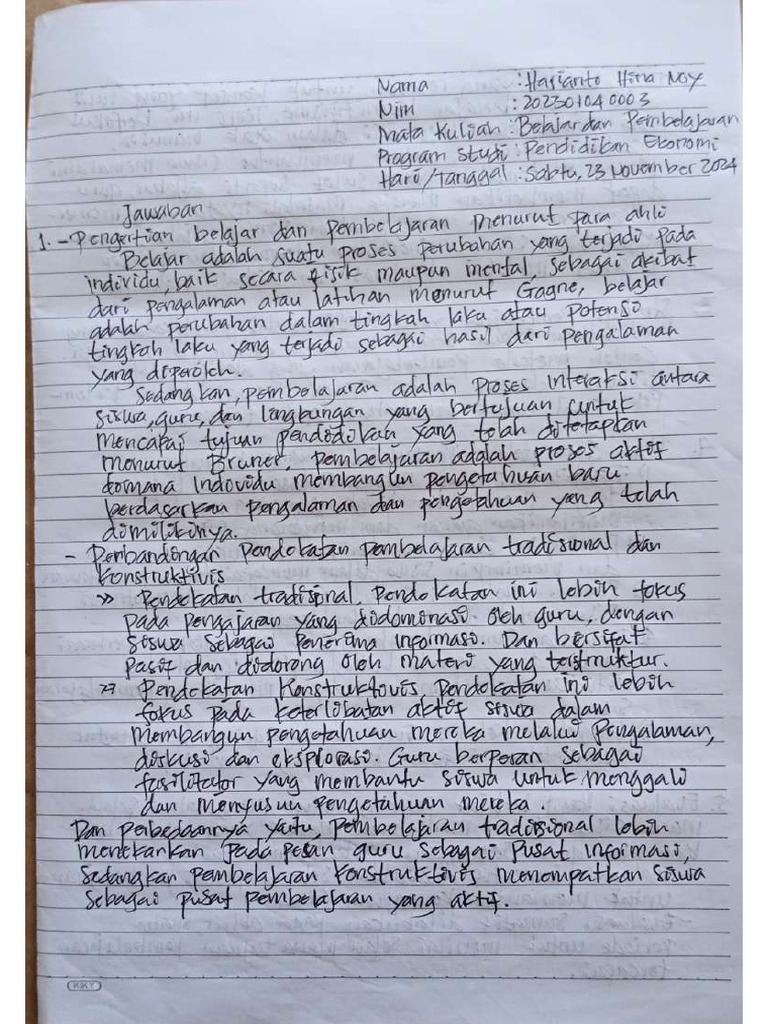 Nama : Harianto Hina Noy
Nim : 202301040003
Mata Kuliah : Belajar dan Pembelajaran
Program Studi : Pendidikan Ekonomi
Hari/Tanggal : Sabtu, 23 November 2024
Jawaban
1. - Pengertian belajar dan pembelajaran menurut para ahli
Belajar adalah suatu proses perubahan yang terjadi pada
individu, baik secara fisik maupun mental, sebagai akibat
dari pengalaman atau latihan menurut Gagne, belajar
adalah perubahan dalam tingkah laku atau potensi
tingkah laku yang terjadi sebagai hasil dari pengalaman
yang diperoleh.
Sedangkan, pembelajaran adalah proses interaksi antara
siswa, guru, dan lingkungan yang bertujuan untuk
mencapai tujuan pendidikan yang telah ditetapkan
menurut Bruner, pembelajaran adalah proses aktif
dimana individu membangun pengetahuan baru
berdasarkan pengalaman dan pengetahuan yang telah
dimilikinya.
- Perbandingan pendekatan pembelajaran tradisional dan
konstruktivis
>> Pendekatan tradisional, Pendekatan ini lebih fokus
pada pengajaran yang didominasi oleh guru, dengan
siswa sebagai penerima informasi. Dan bersifat
pasif dan didorong oleh materi yang terstruktur.
>> Pendekatan Konstruktivis, pendekatan ini lebih
fokus pada keterlibatan aktif siswa dalam
membangun pengetahuan mereka melalui pengalaman,
diskusi dan eksplorasi. Guru berperan sebagai
fasilitator yang membantu siswa untuk menggali
dan menyusun pengetahuan mereka.
Dan perbedaannya yaitu, pembelajaran tradisional lebih
menekankan pada peran guru sebagai pusat informasi,
sedangkan pembelajaran konstruktivis menempatkan siswa
sebagai pusat pembelajaran yang aktif.
KKY